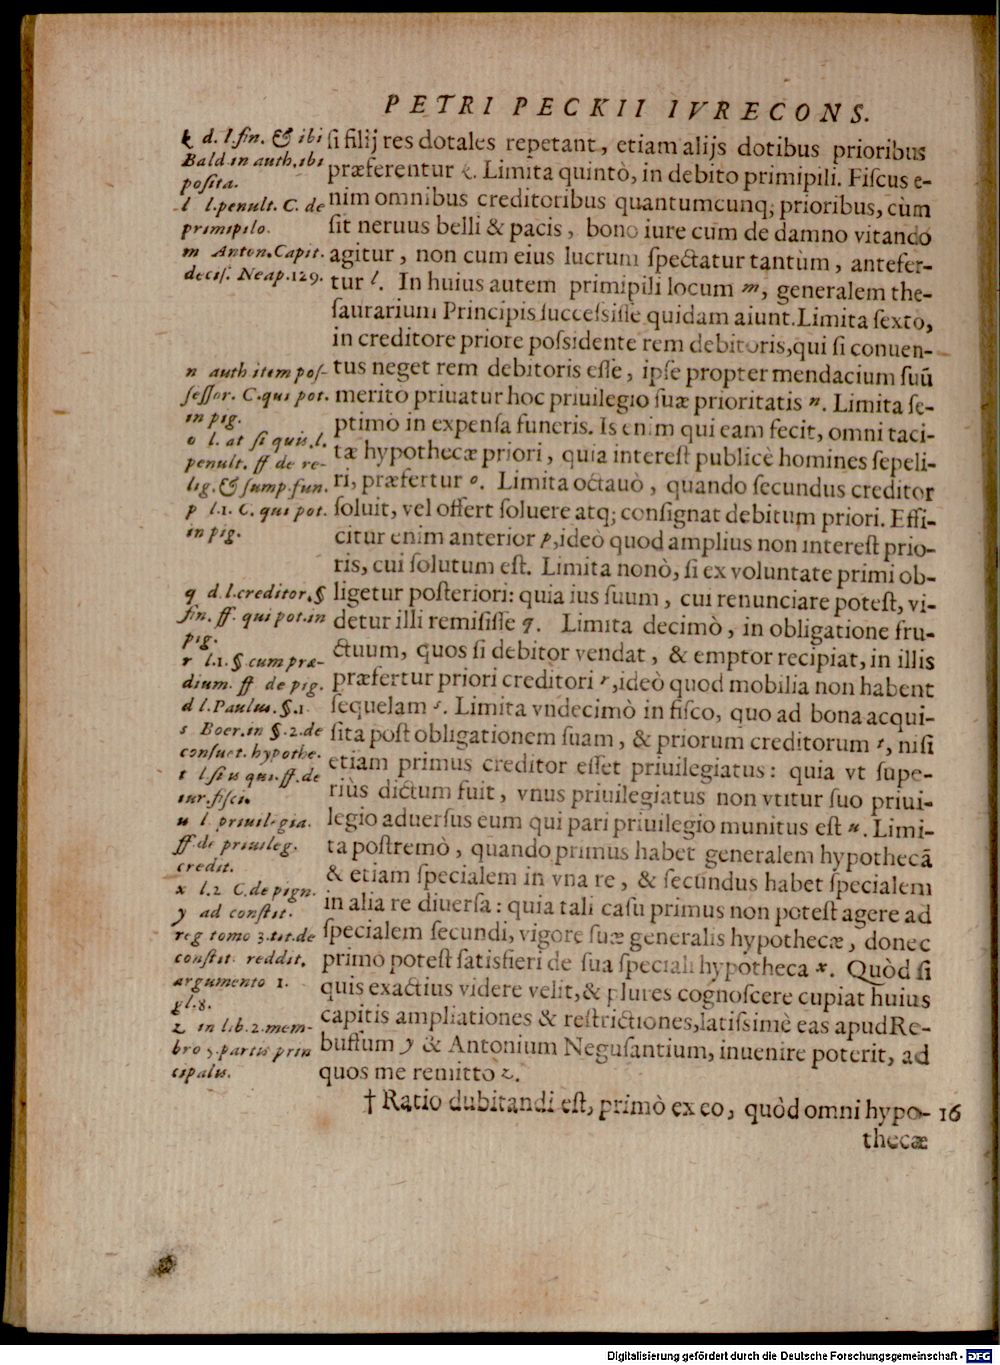 PETRI PECKII IVRECONS.
k d. l. fin. & ibi
Bald in auth. ibi
posita.
l l. penult. C. de
primipilo.
m Anton. Capit.
decis. Neap. 129.
n auth item pos-
sessor. C. qui pot.
in pig.
o l. at si quis. l.
penult. ff de re-
lig. & sump. fun.
p l. 1. C. qui pot.
in pig.
q d. l. creditor. §
fin. ff. qui pot. in
pig.
r l. 1. §. cum præ-
dium. ff de pig.
d l. Paulus. §. 1.
s Boer. in §. 2. de
consuet. hypothe.
t l. si is qui. ff. de
iur. fisci.
u l. priuilegia.
ff de priuileg.
credit.
x l. 2 C. de pign.
y ad constit.
reg tomo 3. tit. de
constit. reddit.
argumento 1.
gl. 8.
z in l. b. 2. mem-
bro 3. partis prin
cipalis.
si filij res dotales repetant, etiam alijs dotibus prioribus
præferentur k. Limita quintò, in debito primipili. Fiscus e-
nim omnibus creditoribus quantumcunq; prioribus, cùm
sit neruus belli & pacis, bono iure cum de damno vitando
agitur, non cum eius lucrum spectatur tantùm, antefer-
tur l. In huius autem primipili locum m, generalem the-
saurarium Principis successisse quidam aiunt. Limita sexto,
in creditore priore possidente rem debitoris, qui si conuen-
tus neget rem debitoris esse, ipse propter mendacium suũ
merito priuatur hoc priuilegio suæ prioritatis n. Limita se-
ptimo in expensa funeris. Is enim qui eam fecit, omni taci-
tæ hypothecæ priori, quia interest publicè homines sepeli-
ri, præfertur o. Limita octauò, quando secundus creditor
soluit, vel offert soluere atq; consignat debitum priori. Effi-
citur enim anterior p, ideò quod amplius non interest prio-
ris, cui solutum est. Limita nonò, si ex voluntate primi ob-
ligetur posteriori: quia ius suum, cui renunciare potest, vi-
detur illi remisisse q. Limita decimò, in obligatione fru-
ctuum, quos si debitor vendat, & emptor recipiat, in illis
præfertur priori creditori r, ideò quod mobilia non habent
sequelam s. Limita vndecimò in fisco, quo ad bona acqui-
sita post obligationem suam, & priorum creditorum t, nisi
etiam primus creditor esset priuilegiatus: quia vt supe-
riùs dictum fuit, vnus priuilegiatus non vtitur suo priui-
legio aduersus eum qui pari priuilegio munitus est u. Limi-
ta postremò, quando primus habet generalem hypothecã
& etiam specialem in vna re, & secundus habet specialem
in alia re diuersa: quia tali casu primus non potest agere ad
specialem secundi, vigore suæ generalis hypothecæ, donec
primò potest satisfieri de sua speciali hypotheca x. Quòd si
quis exactius videre velit, & plures cognoscere cupiat huius
capitis ampliationes & restrictiones, latissimè eas apud Re-
buffum y & Antonium Negusantium, inuenire poterit, ad
quos me remitto z.
† Ratio dubitandi est, primò ex eo, quòd omni hypo- 16
thecæ
Digitalisierung gefördert durch die Deutsche Forschungsgemeinschaft - DFG